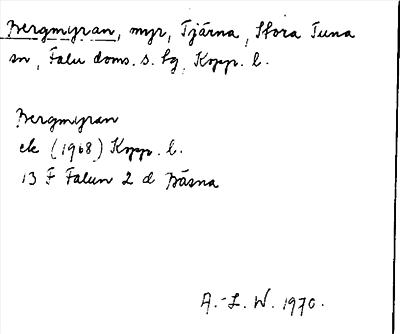 Bergmyran, myr, Tjärna, Stora Tuna
sn, Falu doms. s. tg, Kopp. l.
Bergmyran
ek (1968) Kopp. l.
13 F Falun 2 d Båsna
A.-L. W. 1970.